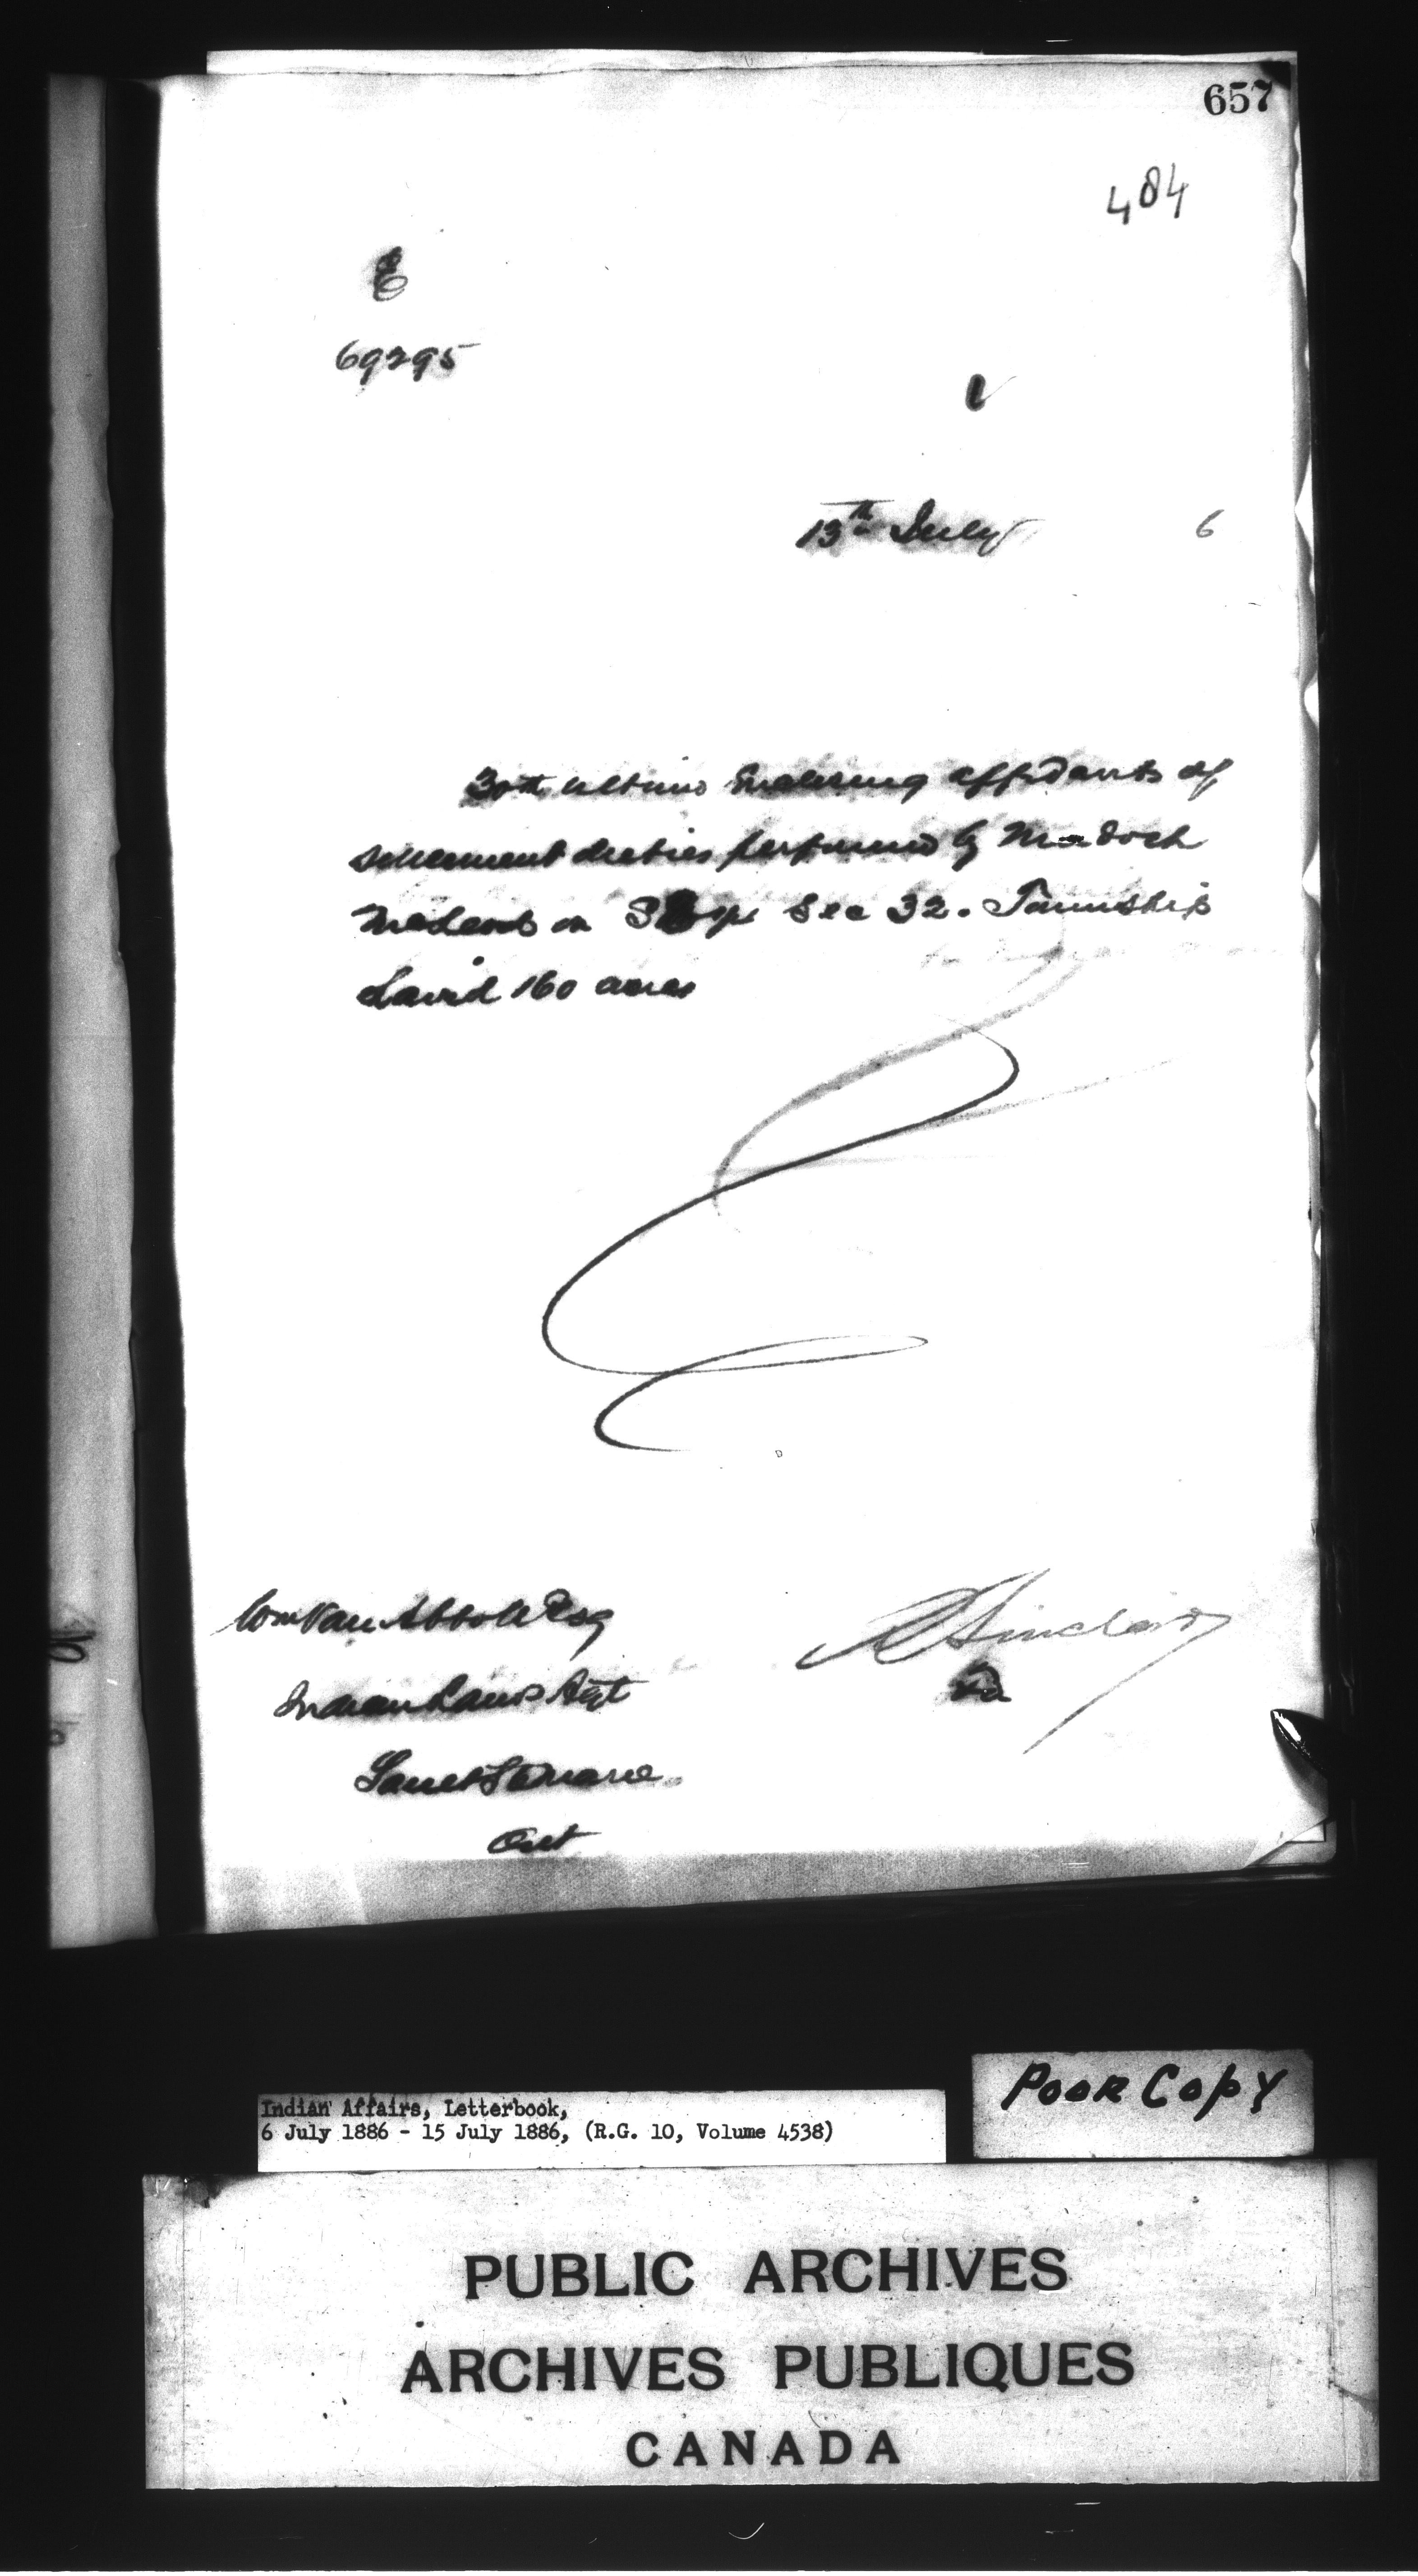 657
484
69295
13th July 6
30th ultimo Enclosing affidavits of
settlement duties performed by Murdoch
McLeod on S 1/4 Sec 32. Township
Laird 160 acres
Wm Van Abbott Esq
Indian Lands Agt
Sault Ste Marie
Ont
R Sinclair
Poor Copy
Indian Affairs, Letterbook,
6 July 1886 - 15 July 1886, (R.G. 10, Volume 4538)
PUBLIC ARCHIVES
ARCHIVES PUBLIQUES
CANADA